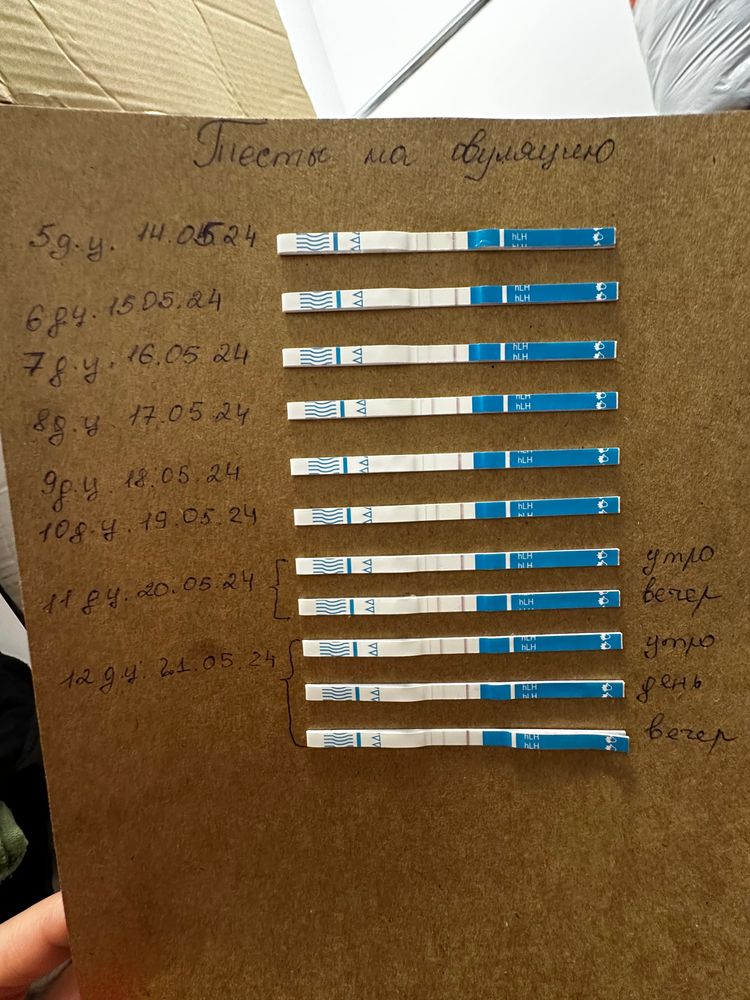 Тесты на овуляцию
5 д.ц. 14.05.24
hLH
6 дц. 15 05.24
hLH
hLH
7 д.ц. 16.05.24
hLH
hLH
8д.ц 17.05.24
hLH
hLH
9д.ц. 18.05.24
hLH
10д.ц. 19.05.24
hLH
hLH
11 дц. 20.05.24
hLH
hLH
утро
hLH
вечер
12 д.ц. 21.05.24
hLH
hLH
утро
hLH
hLH
день
hLH
hLH
вечер